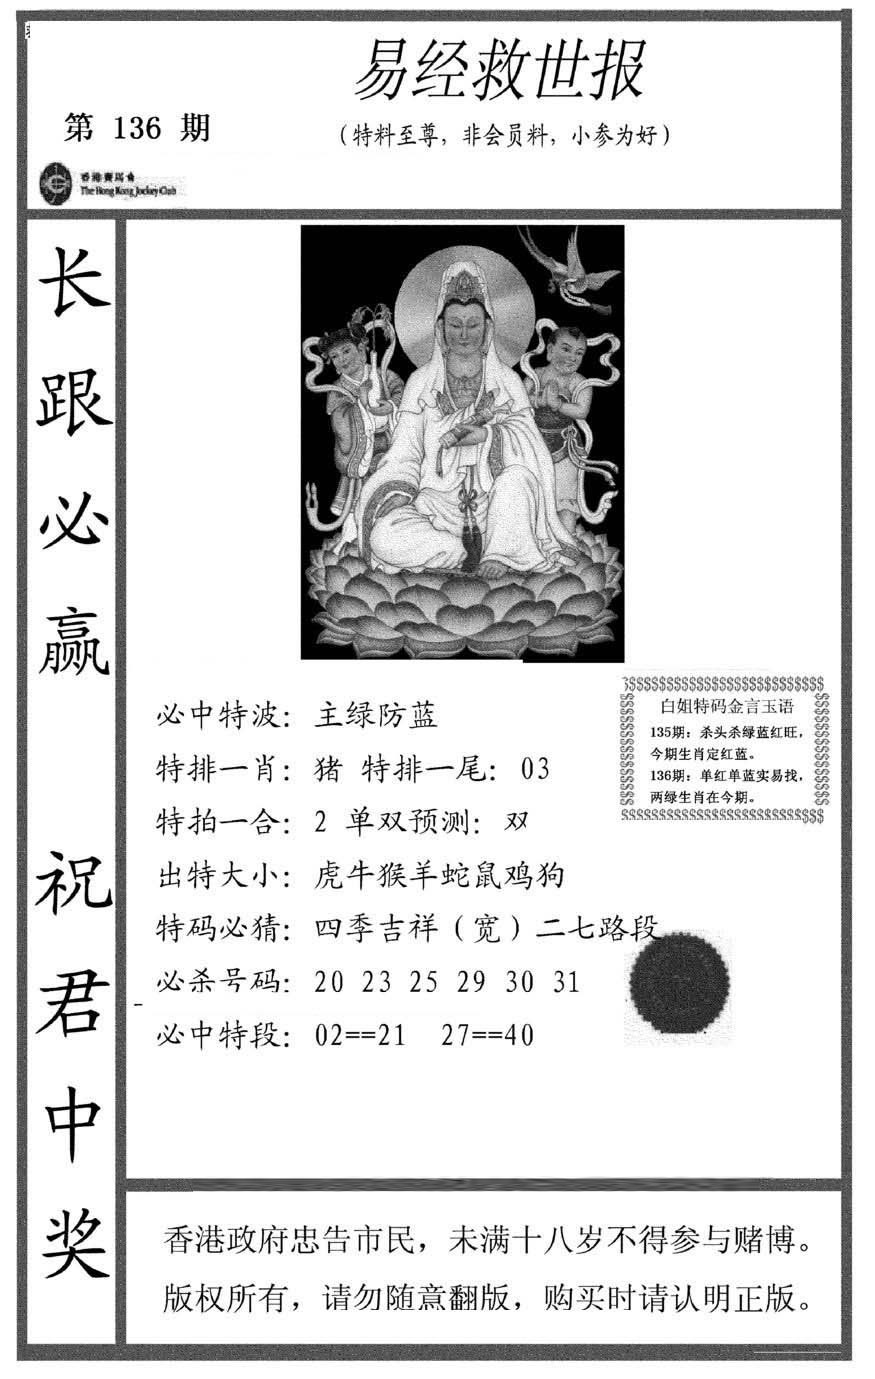 易经救世报
第 136 期
（特料至尊，非会员料，小参为好）
香港賽馬會
The Hong Kong Jockey Club
长跟必赢 祝君中奖
必中特波：主绿防蓝
特排一肖：猪 特排一尾：03
特拍一合：2 单双预测：双
出特大小：虎牛猴羊蛇鼠鸡狗
特码必猜：四季吉祥（宽）二七路段
必杀号码：20 23 25 29 30 31
必中特段：02==21 27==40
白姐特码金言玉语
135期：杀头杀绿蓝红旺，
今期生肖定红蓝。
136期：单红单蓝实易找，
两绿生肖在今期。
香港政府忠告市民，未满十八岁不得参与赌博。
版权所有，请勿随意翻版，购买时请认明正版。